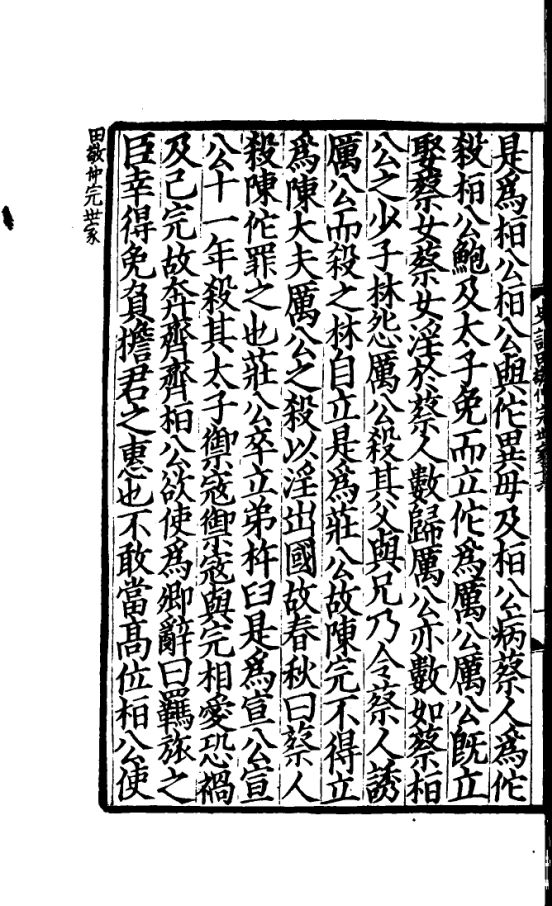 是爲桓公桓公與佗異母及桓公病蔡人爲佗
殺桓公鮑及太子免而立佗爲厲公厲公既立
娶蔡女蔡女淫於蔡人數歸厲公亦數如蔡桓
公之少子林怨厲公殺其父與兄乃令蔡人誘
厲公而殺之林自立是爲莊公故陳完不得立
爲陳大夫厲公之殺以淫出國故春秋曰蔡人
殺陳佗罪之也莊公卒立弟杵臼是爲宣公宣
公十一年殺其太子御寇御寇與完相愛恐禍
及己完故奔齊齊桓公欲使爲卿辭曰羈旅之
臣幸得免負擔君之惠也不敢當高位桓公使
田敬仲完世家